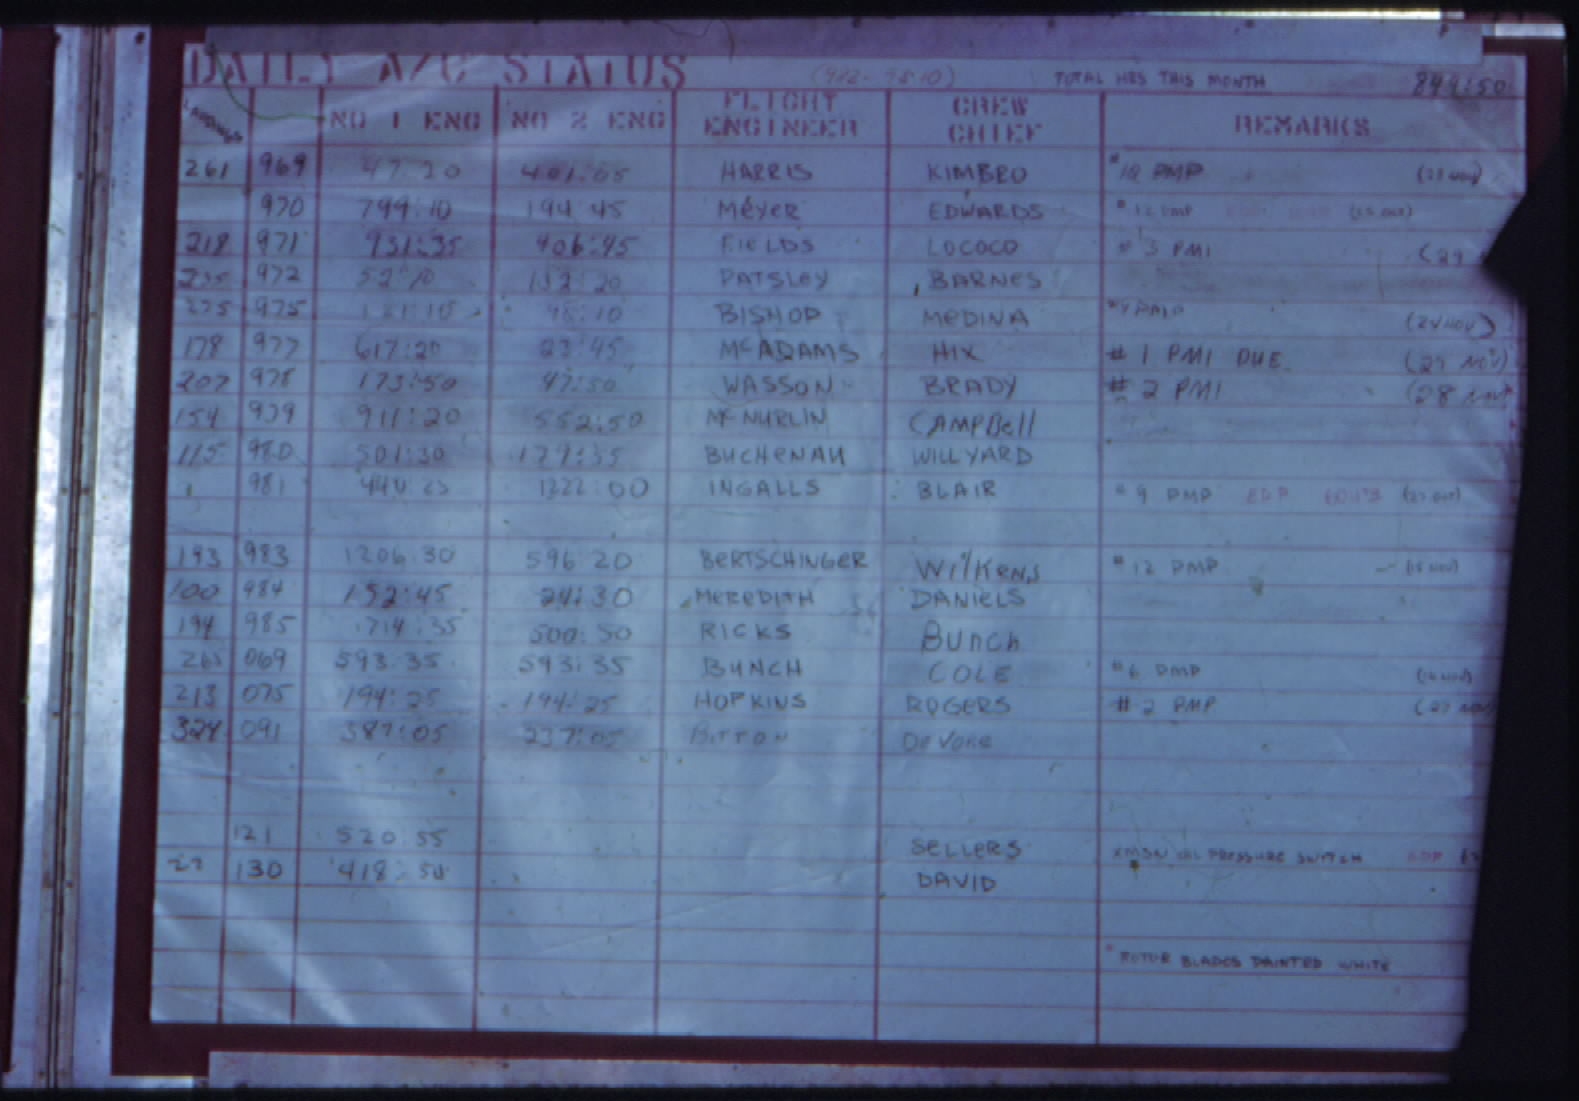 DAILY A/C STATUS TOTAL HRS THIS MONTH 844:50
NO 1 ENG NO 2 ENG FLIGHT ENGINEER CREW CHIEF REMARKS
261 969 47:20 HARRIS KIMBRO PMP
970 799:10 194:45 MEYER EDWARDS # 12 PMP (25 OCT)
218 971 931:35 406:45 FIELDS LOCOCO # 3 PMI (29
972 52:10 132:20 PATSLEY BARNES
975 BISHOP MEDINA (24 NOV)
178 977 617:20 23:45 McADAMS HIX # 1 PMI DUE (27 NOV)
207 978 173:50 47:50 WASSON BRADY # 2 PMI (28 NOV)
154 979 911:20 552:50 McNURLIN CAMPBell
115 980 501:30 179:35 BUCHENAU WILLYARD
981 440:25 1322:00 INGALLS BLAIR # 9 PMP EDP (27 OCT)
193 983 1206:30 596:20 BERTSCHINGER WilKens # 12 PMP (15 NOV)
100 984 152:45 24:30 MEREDITH DANIELS
194 985 714:35 500:50 RICKS BUNCh
265 069 593:35 593:35 BUNCH COLE # 6 PMP
213 075 194:25 194:25 HOPKINS ROGERS # 2 PMP (27 NOV
324 091 387:05 237:05 BITTON DeVore
121 520:55 SELLERS XMSN OIL PRESSURE SWITCH EDP
130 418:50 DAVID
* ROTOR BLADES PAINTED WHITE